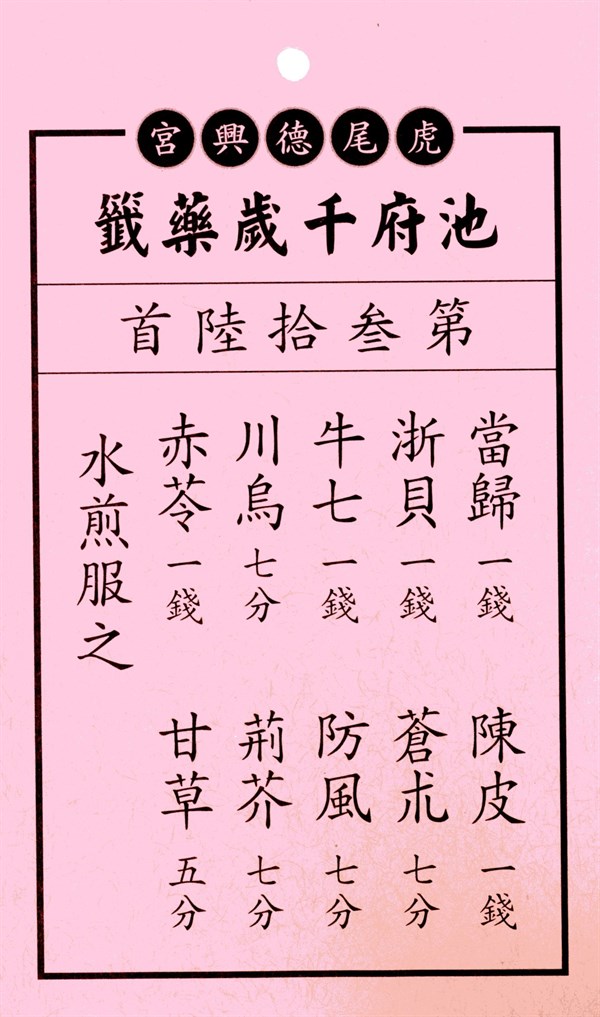 虎尾德興宮
池府千歲藥籤
第叁拾陸首
當歸一錢 陳皮一錢
浙貝一錢 蒼朮七分
牛七一錢 防風七分
川烏七分 荊芥七分
赤苓一錢 甘草五分
水煎服之